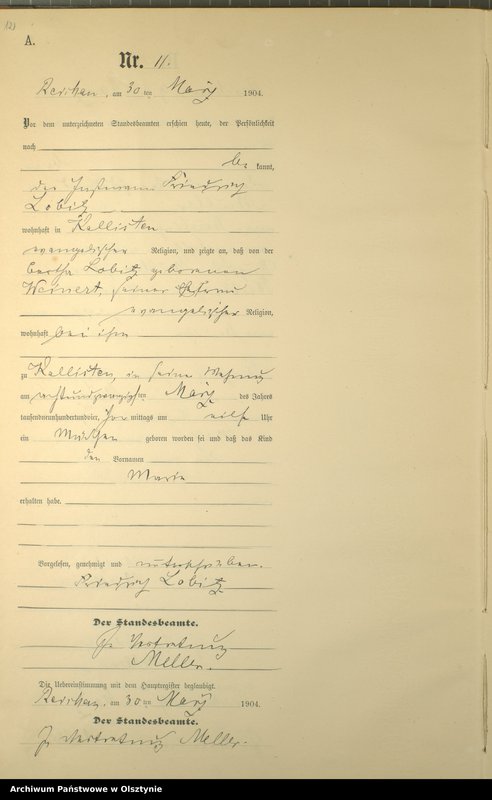 A.
Nr. 11.
Reichau, am 30 ten März 1904.
Vor dem unterzeichneten Standesbeamten erschien heute, der Persönlichkeit
nach
be kannt,
der Instmann Friedrich
Lobitz
wohnhaft in Kallisten
evangelischer Religion, und zeigte an, daß von der
Bertha Lobitz geborenen
Weinert, seiner Ehefrau
evangelischer Religion,
wohnhaft bei ihm
zu Kallisten, in seiner Wohnung
am achtundzwanzigsten März des Jahres
tausendneunhundertundvier, Vor mittags um Uhr
ein Mädchen geboren worden sei und daß das Kind
den Vornamen
Marie
erhalten habe.
Vorgelesen, genehmigt und unterschrieben.
Friedrich Lobitz
Der Standesbeamte.
In Vertretung
Meller.
Die Uebereinstimmung mit dem Hauptregister beglaubigt.
Reichau, am 30 ten März 1904.
Der Standesbeamte.
In Vertretung Meller.
Archiwum Państwowe w Olsztynie